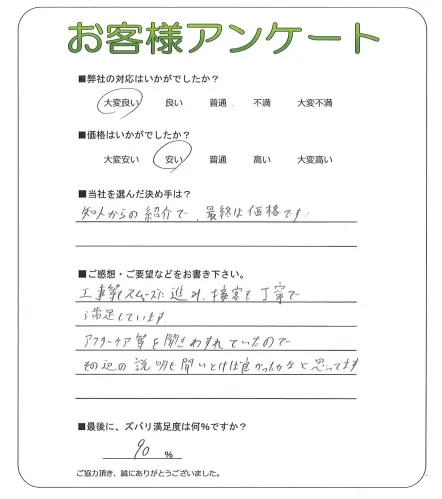 お客様アンケート
■弊社の対応はいかがでしたか？
大変良い 良い 普通 不満 大変不満
■価格はいかがでしたか？
大変安い 安い 普通 高い 大変高い
■当社を選んだ決め手は？
知人からの紹介で、最終は価格です!
■ご感想・ご要望などをお書き下さい。
工事等もスムーズに進み、接客も丁寧で
満足しています。
アフターケア等を聞きわすれていたので
その辺の説明も聞いとけば良かったかなと思ってます
■最後に、ズバリ満足度は何%ですか？
90 %
ご協力頂き、誠にありがとうございました。